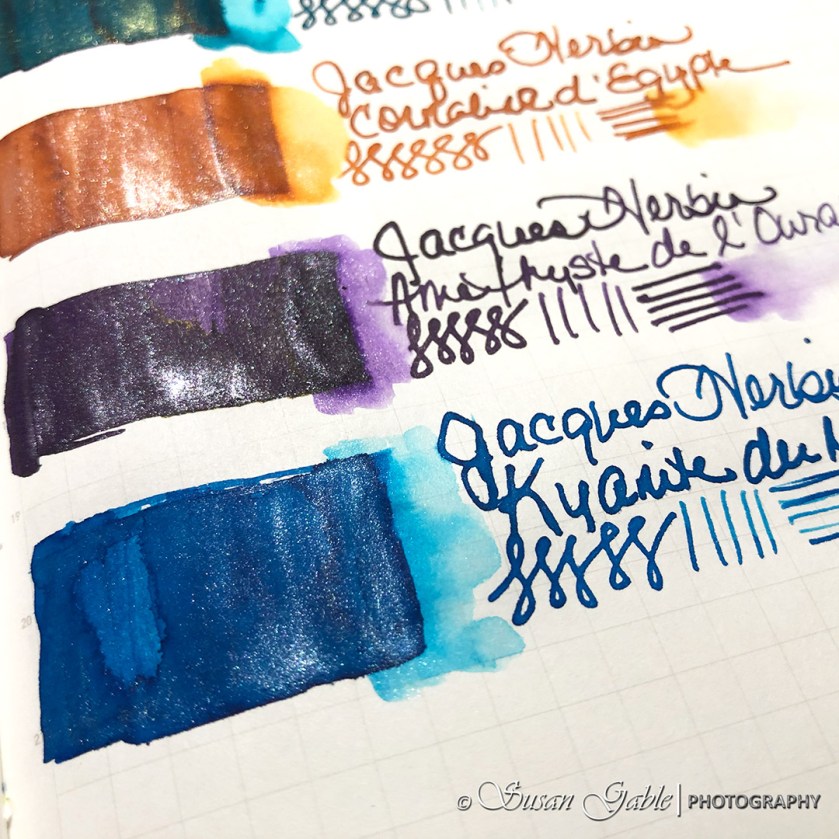 Jacques Herbin
Cornaline d'Egypte
Jacques Herbin
Amethyste de l'Oura
Jacques Herbi
Kyanite du
19
20
© Susan Gable | PHOTOGRAPHY